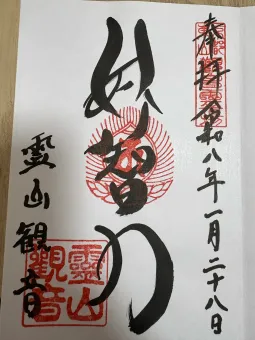 奉拝 令和八年一月二十八日
妙智力
霊山観音
靈山
觀音